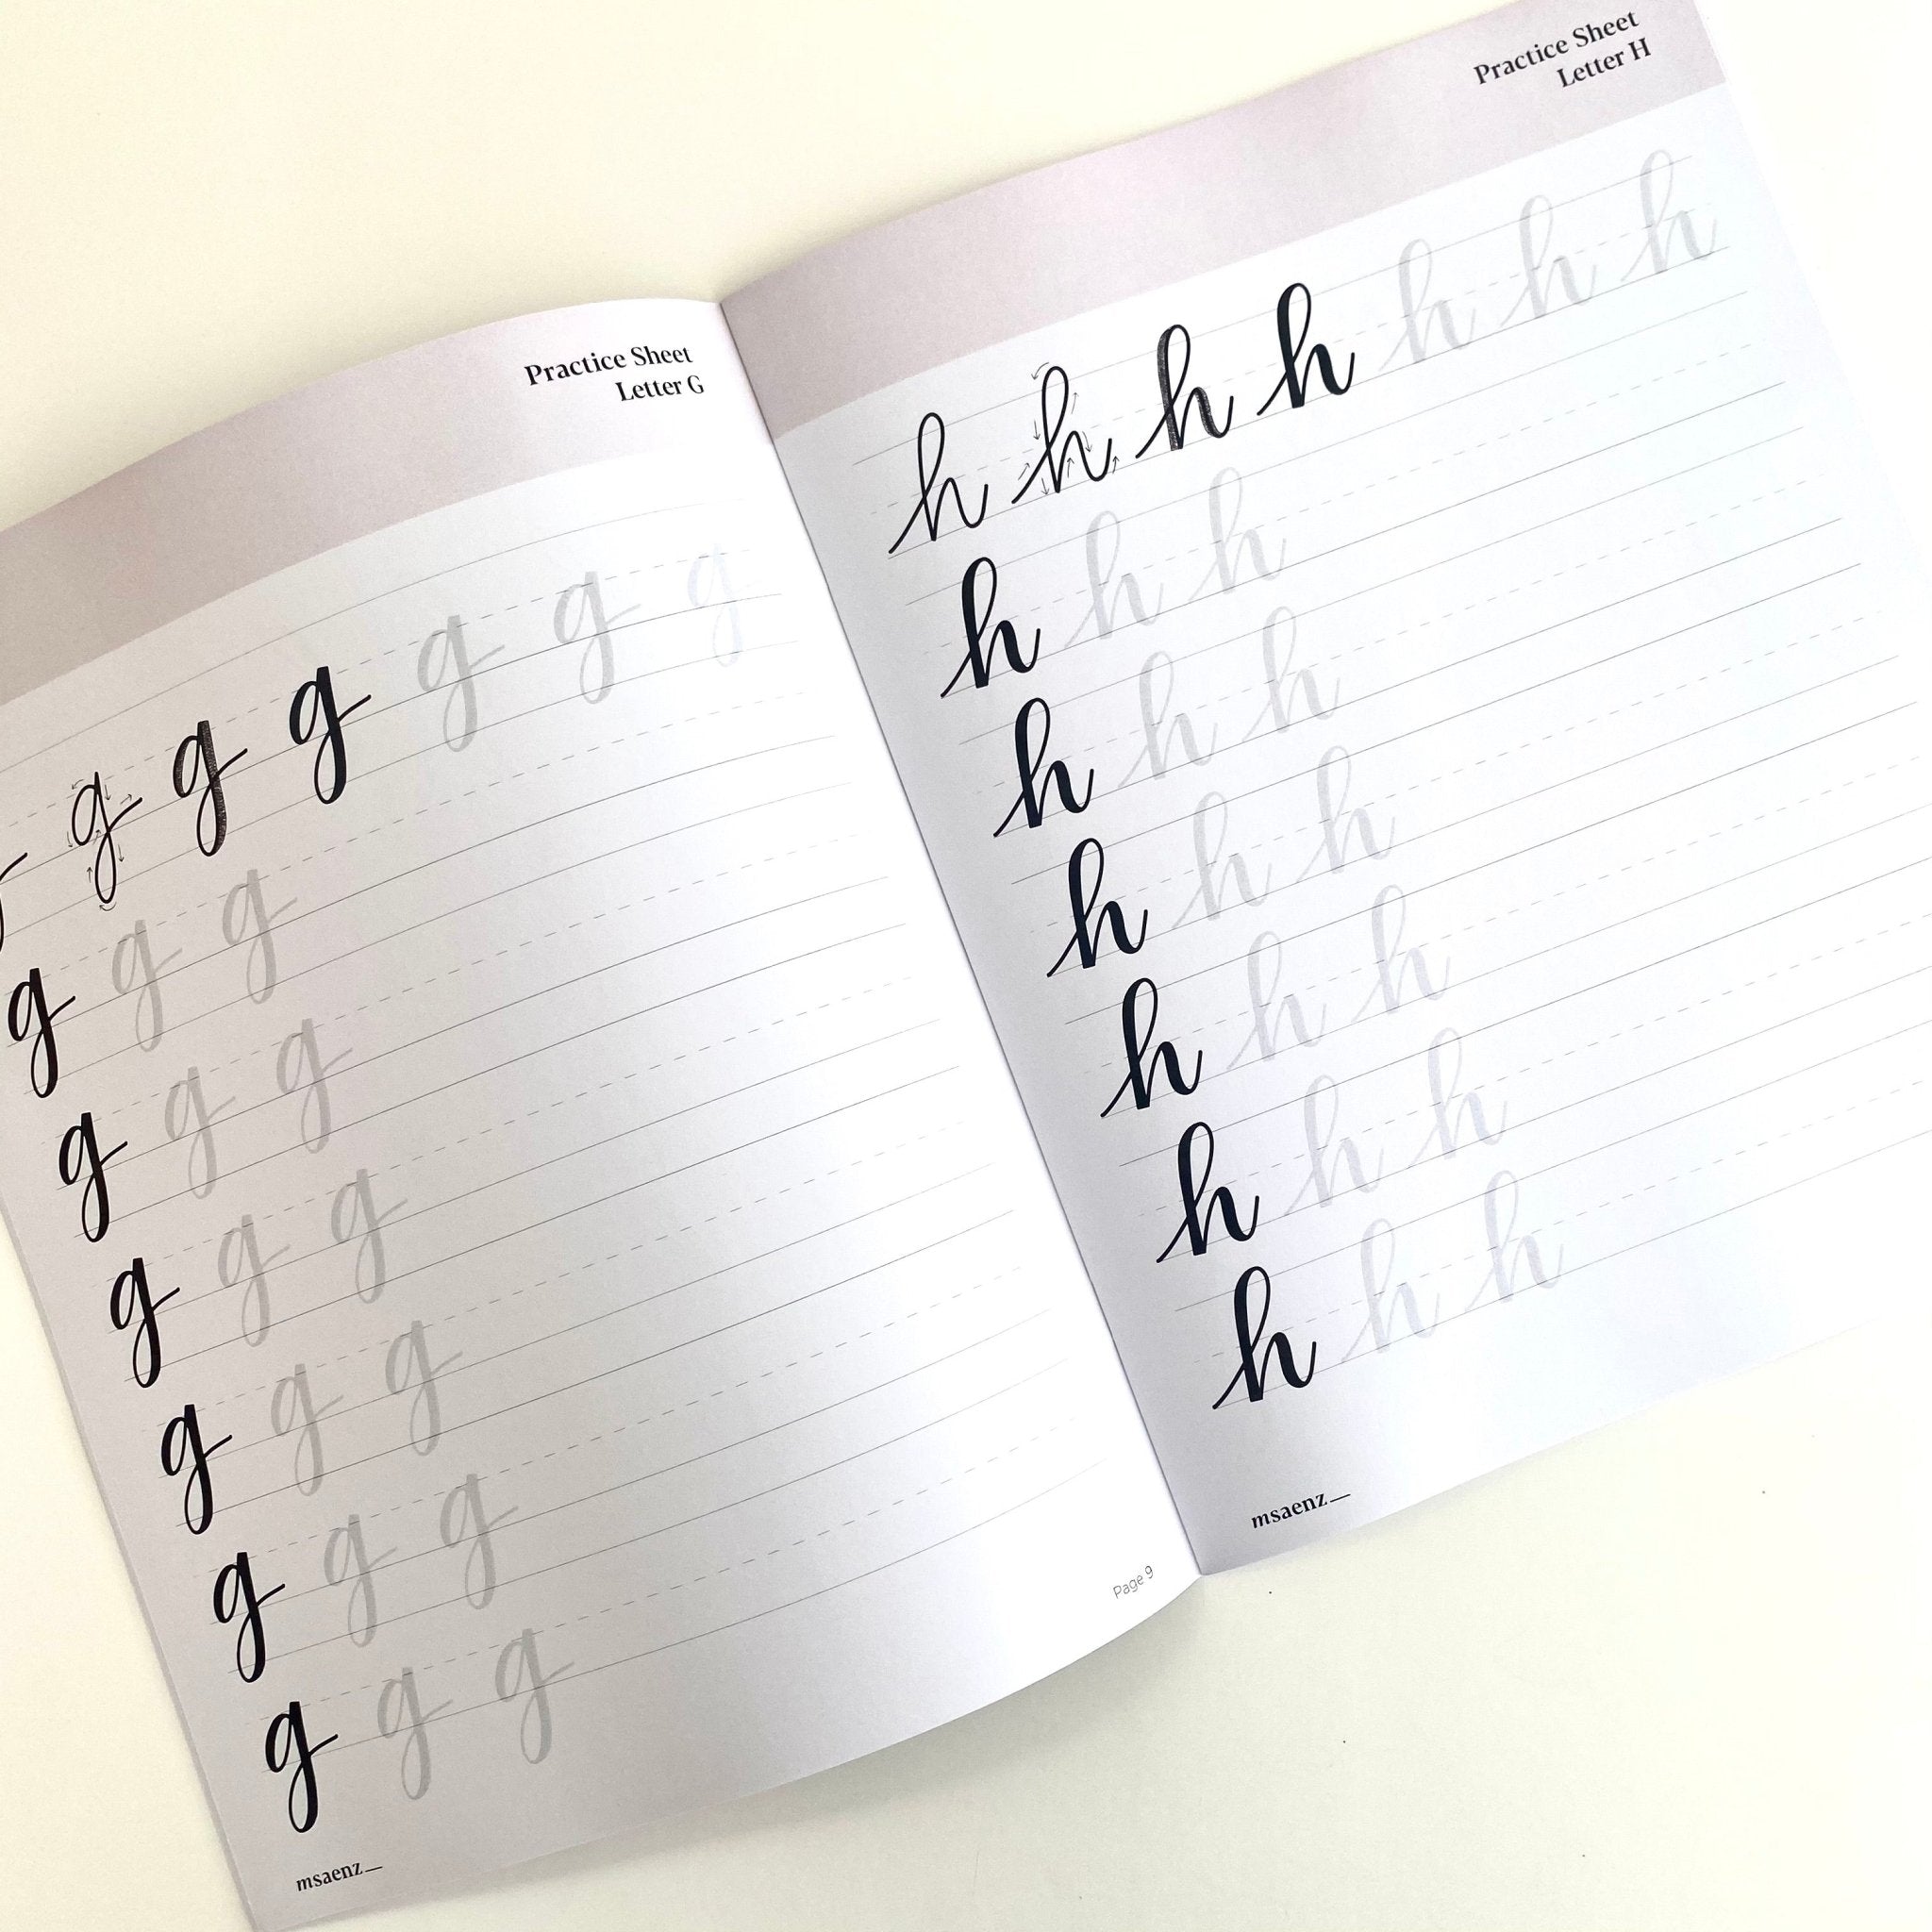 Practice Sheet
Letter G
g g g g g g
g g g
g g g
g g g
g g g
g g g
g g g
msaenz—
Page 9
Practice Sheet
Letter H
h h h h h h h
h h h
h h h
h h h
h h h
h h h
h h h
msaenz—